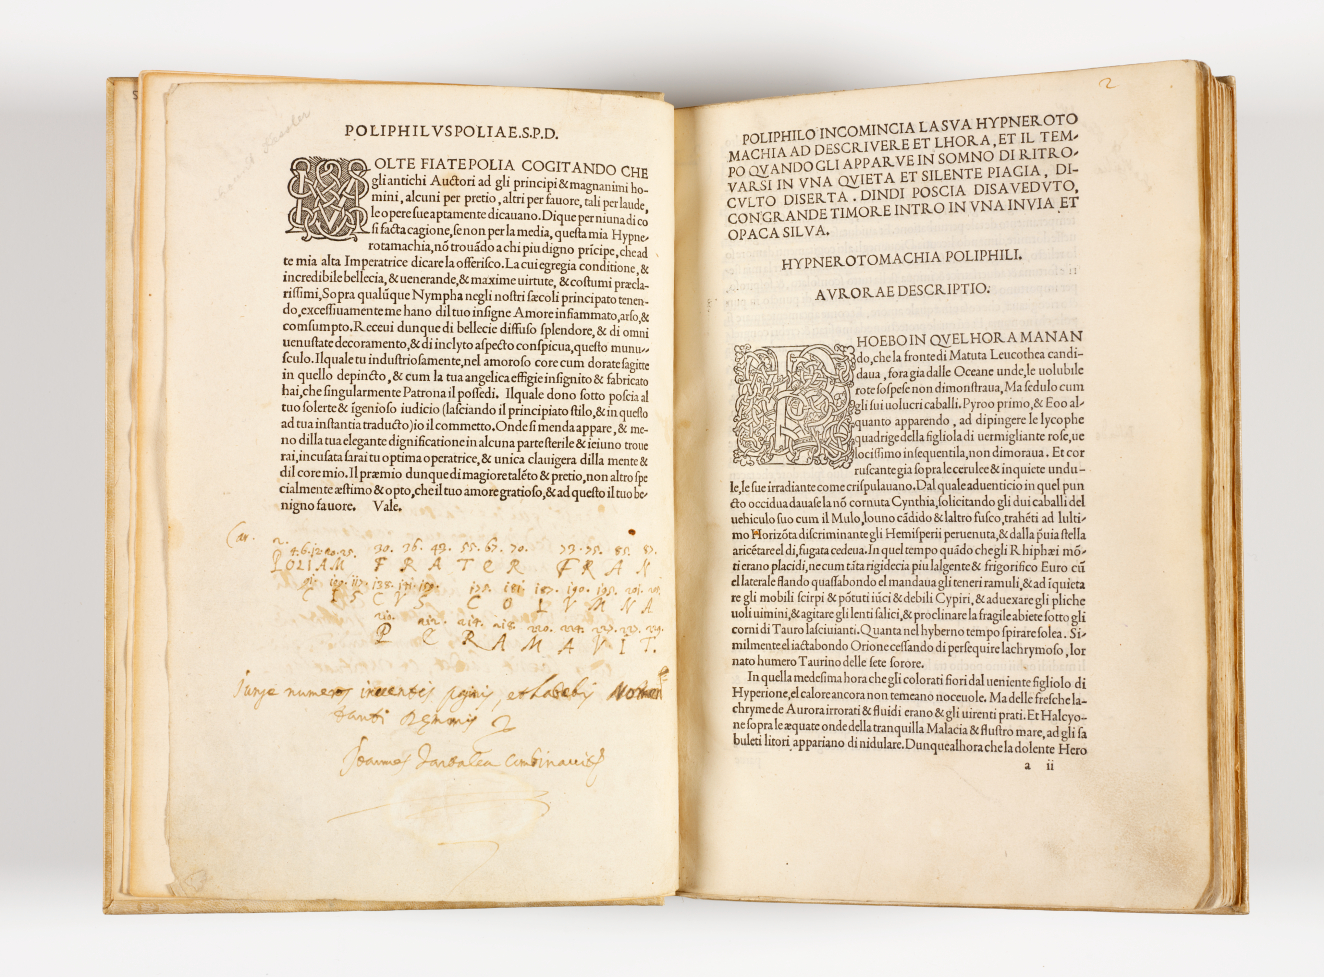 POLIPHILVS POLIAE.S.P.D.
MOLTE FIATE POLIA COGITANDO CHE
gli antichi Auctori ad gli principi & magnanimi ho-
mini, alcuni per pretio, altri per fauore, tali per laude,
le opere sue aptamente dicauano. Dique per niuna di co
si facta cagione, se non per la media, questa mia Hypne-
rotamachia, nō trouãdo a chi piu digno prĩcipe, che ad
te mia alta Imperatrice dicare la offerisco. La cui egregia conditione, &
incredibile bellecia, & uenerande, & maxime uirtute, & costumi præcla-
rissimi, Sopra qualũque Nympha negli nostri sæcoli principato tenen-
do, excessiuamente me hano dil tuo insigne Amore infiammato, arso, &
comsumpto. Receui dunque di bellecie diffuso splendore, & di omni
uenustate decoramento, & di inclyto aspecto conspicua, questo munu-
sculo. Il quale tu industriosamente, nel amoroso core cum dorate sagitte
in quello depincto, & cum la tua angelica effigie insignito & fabricato
hai, che singularmente Patrona il possedi. Il quale dono sotto poscia al
tuo solerte & ĩgenioso iudicio (lasciando il principiato stilo, & in questo
ad tua instantia traducto) io il commetto. Onde si menda appare, & me-
no dilla tua elegante dignificatione in alcuna parte sterile & ieiuno troue
rai, incusata sarai tu optima operatrice, & unica clauigera dilla mente &
dil core mio. Il præmio dunque di magiore talẽto & pretio, non altro spe
cialmente æstimo & opto, che il tuo amore gratioso, & ad questo il tuo be-
nigno fauore. Vale.
POLIAM FRATER FRAN
CISCVS COLVMNA
PERAMAVIT.
2
POLIPHILO INCOMINCIA LA SVA HYPNEROTO
MACHIA AD DESCRIVERE ET LHORA, ET IL TEM-
PO QVANDO GLI APPARVE IN SOMNO DI RITRO-
VARSI IN VNA QVIETA ET SILENTE PIAGIA, DI-
CVLTO DISERTA. DINDI POSCIA DISAVEDVTO,
CON GRANDE TIMORE INTRO IN VNA INVIA ET
OPACA SILVA.
HYPNEROTOMACHIA POLIPHILI.
AVRORAE DESCRIPTIO.
PHOEBO IN QVEL HORA MANAN
do, che la fronte di Matuta Leucothea candi-
daua, fora gia dalle Oceane unde, le uolubile
rote sospese non dimonstraua, Ma sedulo cum
gli sui uolucri caballi. Pyroo primo, & Eoo al-
quanto apparendo, ad dipingere le lycophe
quadrige della figliola di uermigliante rose, ue
locissimo insequentila, non dimoraua. Et cor
ruscante gia sopra le cerulee & inquiete undu-
le, le sue irradiante come crispulauano. Dal quale aduenticio in quel pun
cto occidua dauase la nō cornuta Cynthia, solicitando gli dui caballi del
uehiculo suo cum il Mulo, louno cãdido & laltro fusco, trahẽti ad lulti-
mo Horizõta discriminante gli Hemisperii peruenuta, & dalla p̃uia stella
aricẽtare el di, fugata cedeua. In quel tempo quãdo che gli Rhiphæi mõ-
ti erano placidi, ne cum tãta rigidecia piu lalgente & frigorifico Euro cũ
el laterale flando quassabondo el mandaua gli teneri ramuli, & ad ĩquieta
re gli mobili scirpi & põtuti iũci & debili Cypiri, & aduexare gli pliche
uoli uimini, & agitare gli lenti salici, & proclinare la fragile abiete sotto gli
corni di Tauro lasciuianti. Quanta nel hyberno tempo spirare solea. Si-
milmente el iactabondo Orione cessando di persequire lachrymoso, lor
nato humero Taurino delle sete sorore.
In quella medesima hora che gli colorati fiori dal ueniente figliolo di
Hyperione, el calore ancora non temeano noceuole. Ma delle fresche la-
chryme de Aurora irrorati & fluidi erano & gli uirenti prati. Et Halcyo-
ne sopra le æquate onde della tranquilla Malacia & flustro mare, ad gli sa
buleti litori appariano di nidulare. Dunque alhora che la dolente Hero
a ii